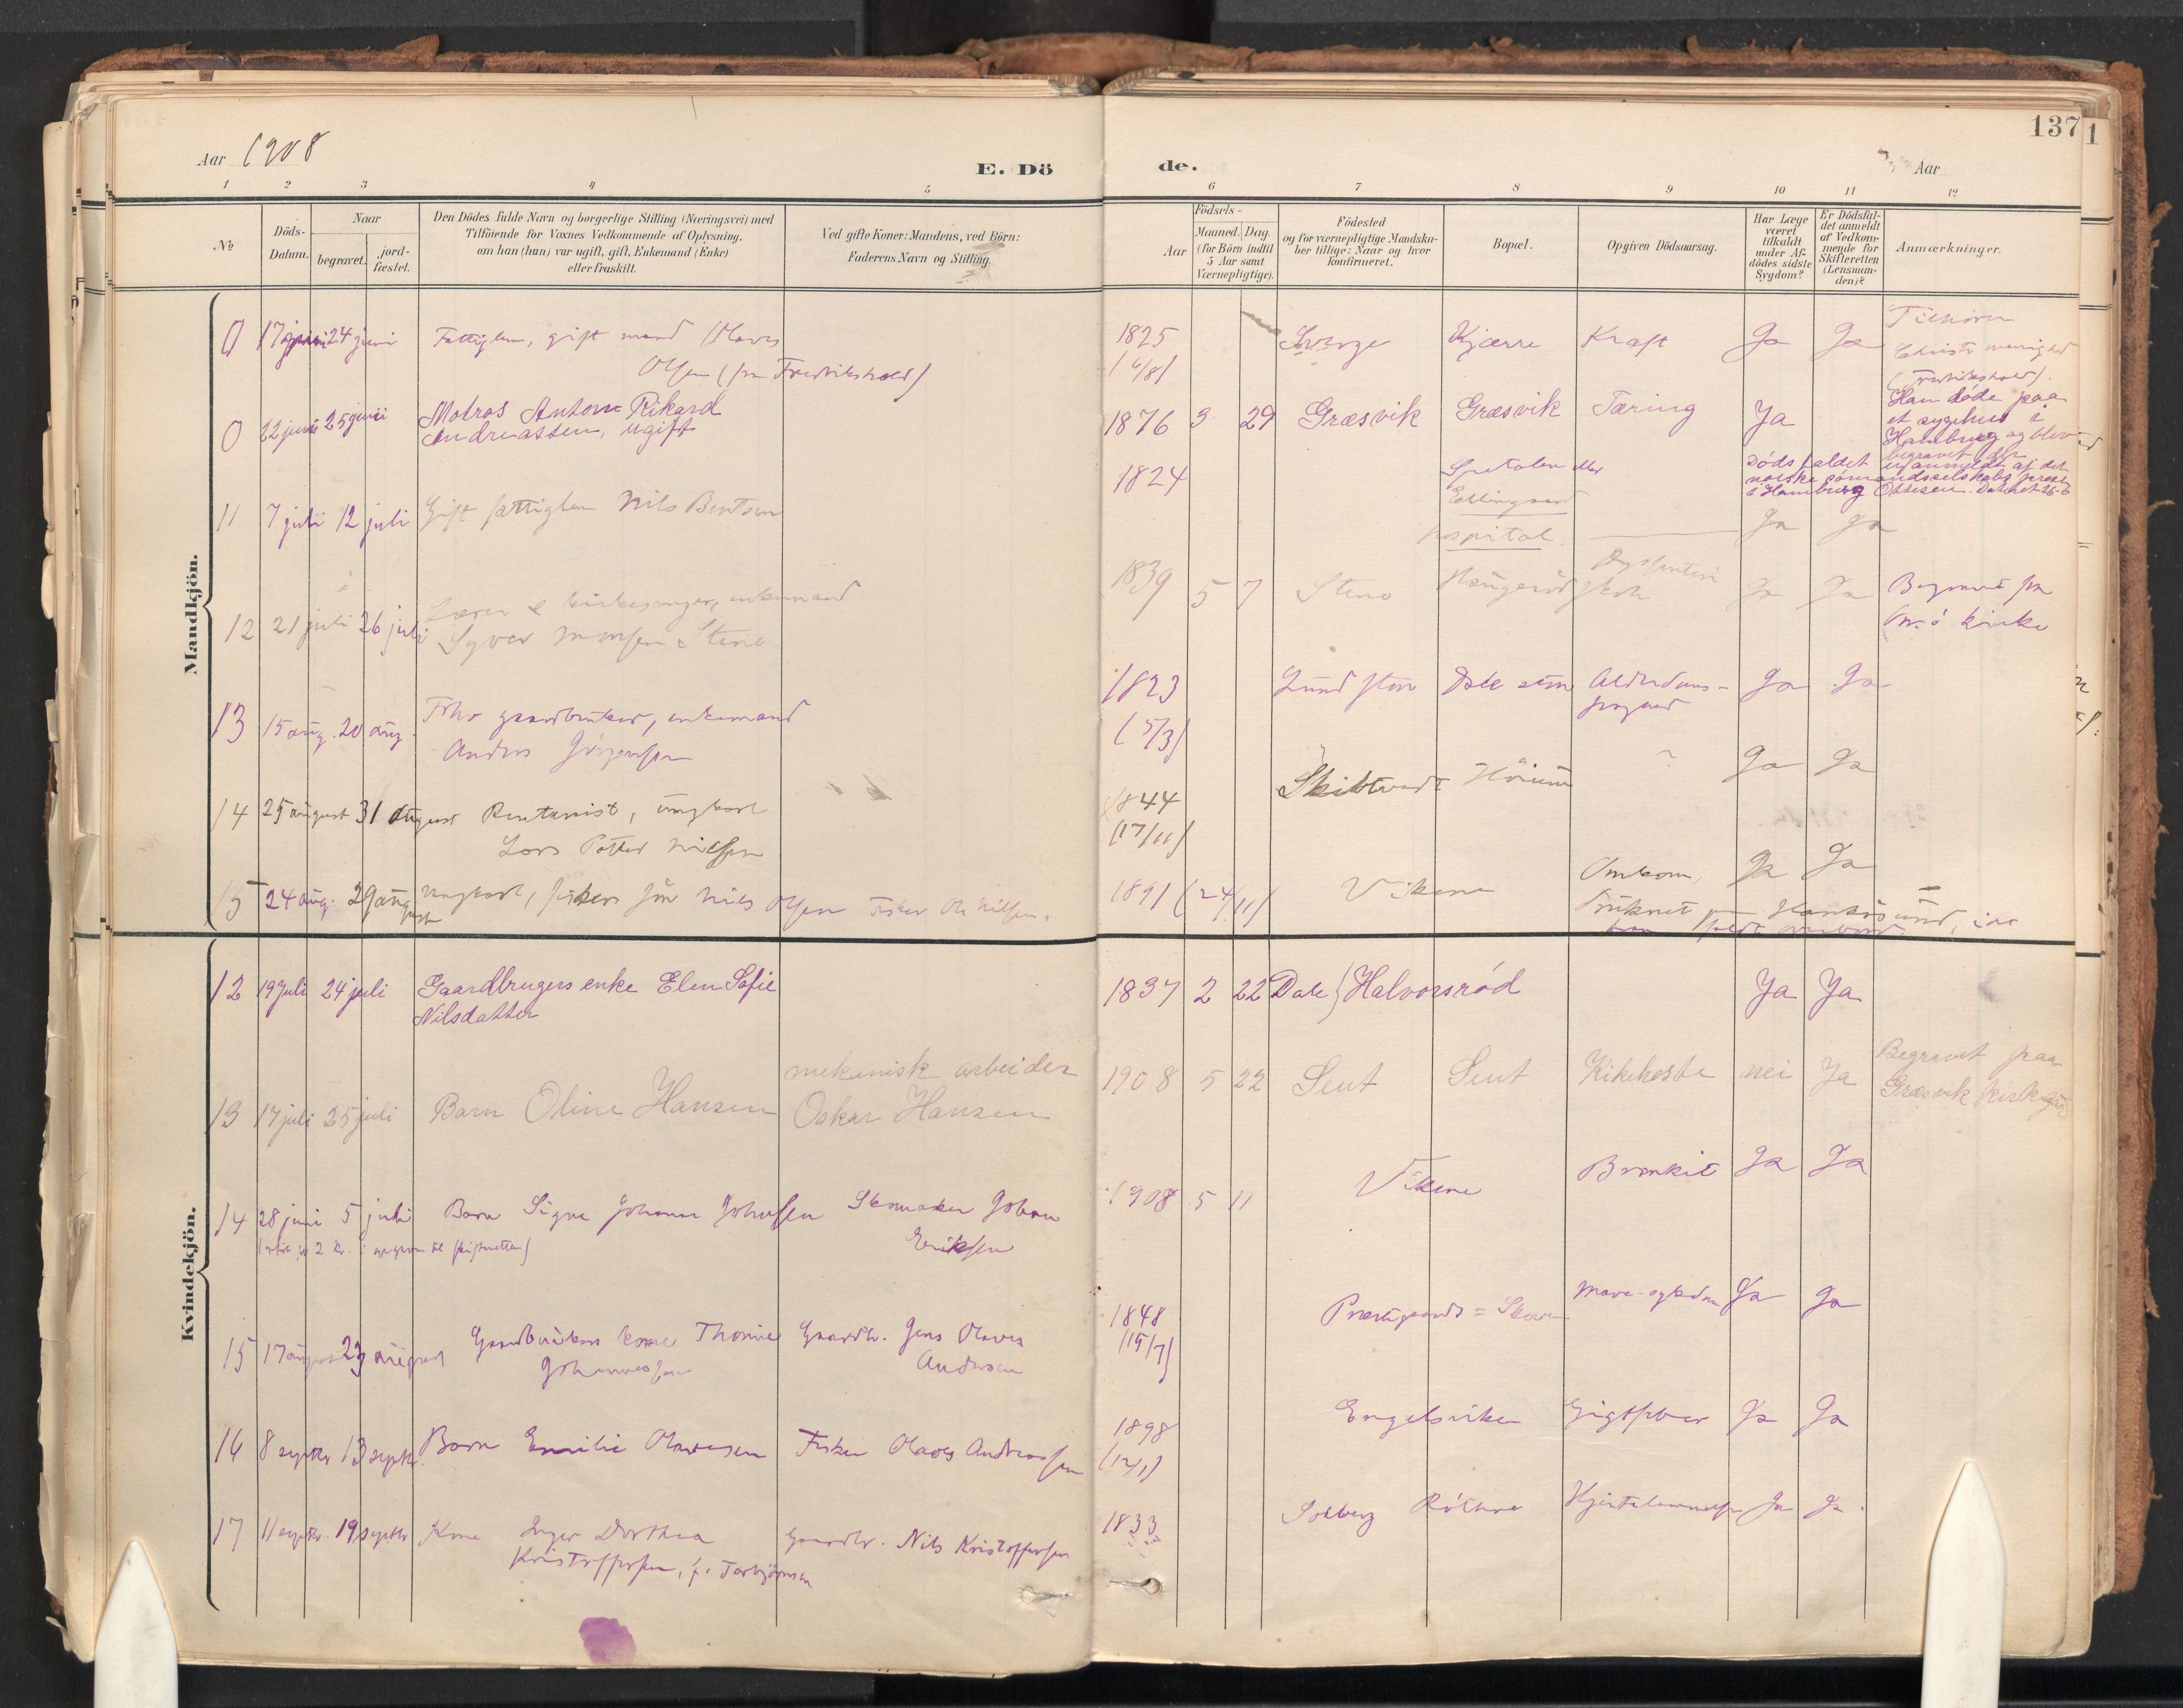 137
1
Aar 1908
E. Dö
de.
Aar
1 2 3 4 5 6 7 8 9 10 11 12
№
Döds-
Datum.
Naar
begravet.
jord-
fæstet.
Den Dödes fulde Navn og borgerlige Stilling (Næringsvei) med
Tilföiende for Voxnes Vedkommende af Oplysning,
om han (hun) var ugift, gift, Enkemand (Enke)
eller fraskilt.
Ved gifte Koner: Mandens, ved Börn:
Faderens Navn og Stilling.
Aar
Födsels-
Maaned. Dag.
(for Börn indtil
5 Aar samt
Værnepligtige).
Födested
og for værnepligtige Mandska-
ber tillige: Naar og hvor
konfirmeret.
Bopæl.
Opgiven Dödsaarsag.
Har Læge
været
tilkaldt
under Af-
dödes sidste
Sygdom?
Er Dödsfal-
det anmeldt
af Vedkom-
mende for
Skifteretten
(Lensman-
den)?
Anmærkninger.
Mandkjön.
0 17 juni 24 juni Fattiglem, gift mand Olaves 1825 Sverge Kjærre Kræft Ja Ja
Olsen (fra Fredrikshald)
(Fredrikshald).
0 22 juni 25 juni Matros Anton Rikard 1876 3 29 Græsvik Græsvik Tæring Ja Han döde paa
Andreassen, ugift et sygehus i
Hamburg og blev
begravet der
Dödsfaldet er anmeldt af det
norske sömandsselskabs prest
i Hamburg Ottesen. Dateret 26-6
11 7 juli 12 juli Gift fattiglem Nils Bentsen 1824 Spetalen eller
Ellingaard
hospital Ja Ja
12 21 juli 26 juli Lærer & kirkesanger, enkemand 1839 5 7 Stene Ja Ja Begravet fra
Syver Monsen Stene kirke
13 15 aug. 20 aug. gaardbruker, enkemand 1823 Ja Ja
Anders Jörgensen (5/3)
14 25 august 31 august Rentenist, ungkarl 1844 Skibtvedt ? Ja Ja
Lars Petter Nilsen (17/11)
15 24 aug. 29 august ungkarl, fiskers sön Nils Olsen Fisker Ole Nilsen. 1891 (24/11) Vikene Omkom, Ja Ja
Druknet
Kvindekjön.
12 19 juli 24 juli Gaardbrugers enke Elen Sofie 1837 2 22 Dale } Halvorsröd Ja Ja
Nilsdatter
mekanisk arbeider
13 17 juli 25 juli Barn Oline Hansen Oskar Hansen 1908 5 22 Seut Seut Kikhoste nei Ja Begravet paa
Græsvik kirkegård
14 28 juni 5 juli Barn Signe Johanne Johansen Skomaker Johan 1908 5 11 Vikene Bronkit Ja Ja
Eriksen
15 17 august 23 august Gaardbrukers kone Thomine Gaardbr. Jens Olaves 1848 Præstegaards = Mave-sykdom Ja Ja
Johannesen Andersen (15/7)
16 8 septbr 13 septbr. Barn Emilie Olavesen Fisker Olaves Andreassen 1898 Engelsviken Gigtfeber Ja Ja
(12/1)
17 11 septbr. 19 septbr Kone Inger Dorthea Gaardbr. Nils Kristoffersen 1833 Solberg Röthne Ja Ja
Kristoffersen, f. Torbjörnsen